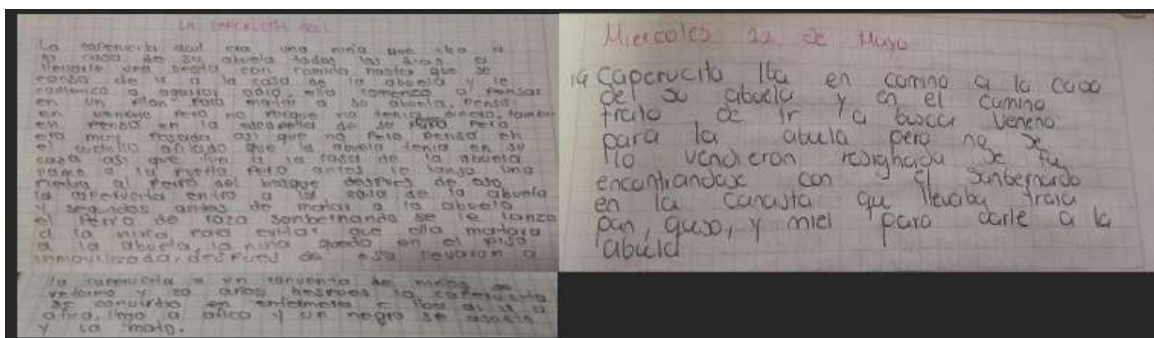 LA CAPERUCITA AZUL
La caperucita azul era una niña que iba a
la casa de su abuela todos los dias a
llevarle una cesta con comida, hasta que se
canso de ir a la casa de la abuela y le
comenzo a agarrar odio, ella comenzo a pensar
en un plan para matar a su abuela, penso
en veneno pero no porque no tenia dinero, tambi
en penso en la escopeta de su papa pero
era muy pesada asi que no pero penso en
el cuchillo afilado que la abuela tenia en su
casa asi que fue a la casa de la abuela
a la puerta pero antes le lanzo una
piedra al perro del bosque despues de eso
la caperucita entro a la casa de la abuela
y segundos antes de matar a la abuela
el perro de raza sanbernando se le lanzo
a la niña para evitar que ella matara
a la abuela, la niña quedo en el piso
inmovilizada, despues de eso llevaron a
la caperucita a un convento de niñas se
reformo y 20 años despues la caperucita
se convirtio en enfermera e iba a ir a
africa, llego a africa y un negro se asusto
y la mato.
Miercoles 22 de Mayo
Caperucita Iba en camino a la casa
del su abuela y en el camino
trato de ir a buscar veneno
para la abuela pero no se
lo vendieron resignada se fue
encontrandose con el sanbernardo
en la canasta que llevaba traia
pan, queso, y miel para darle a la
abuela